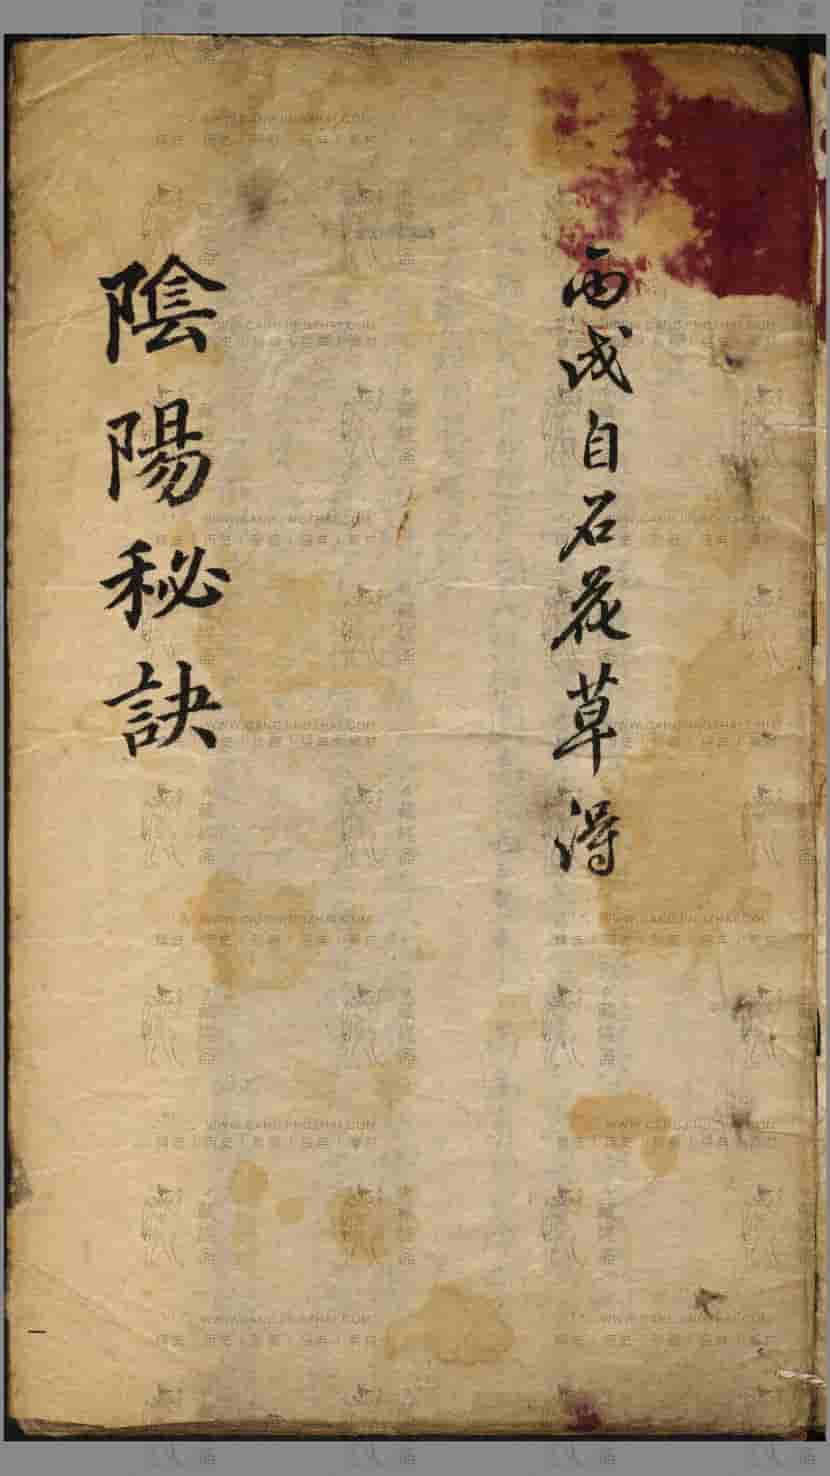 丙戌自石花草得
陰陽秘訣